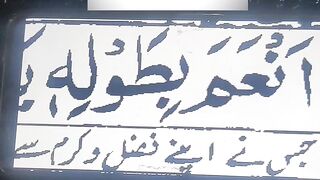 اَنْعَمَ بِطَوْلِهٖ
جس نے اپنے فضل و کرم سے